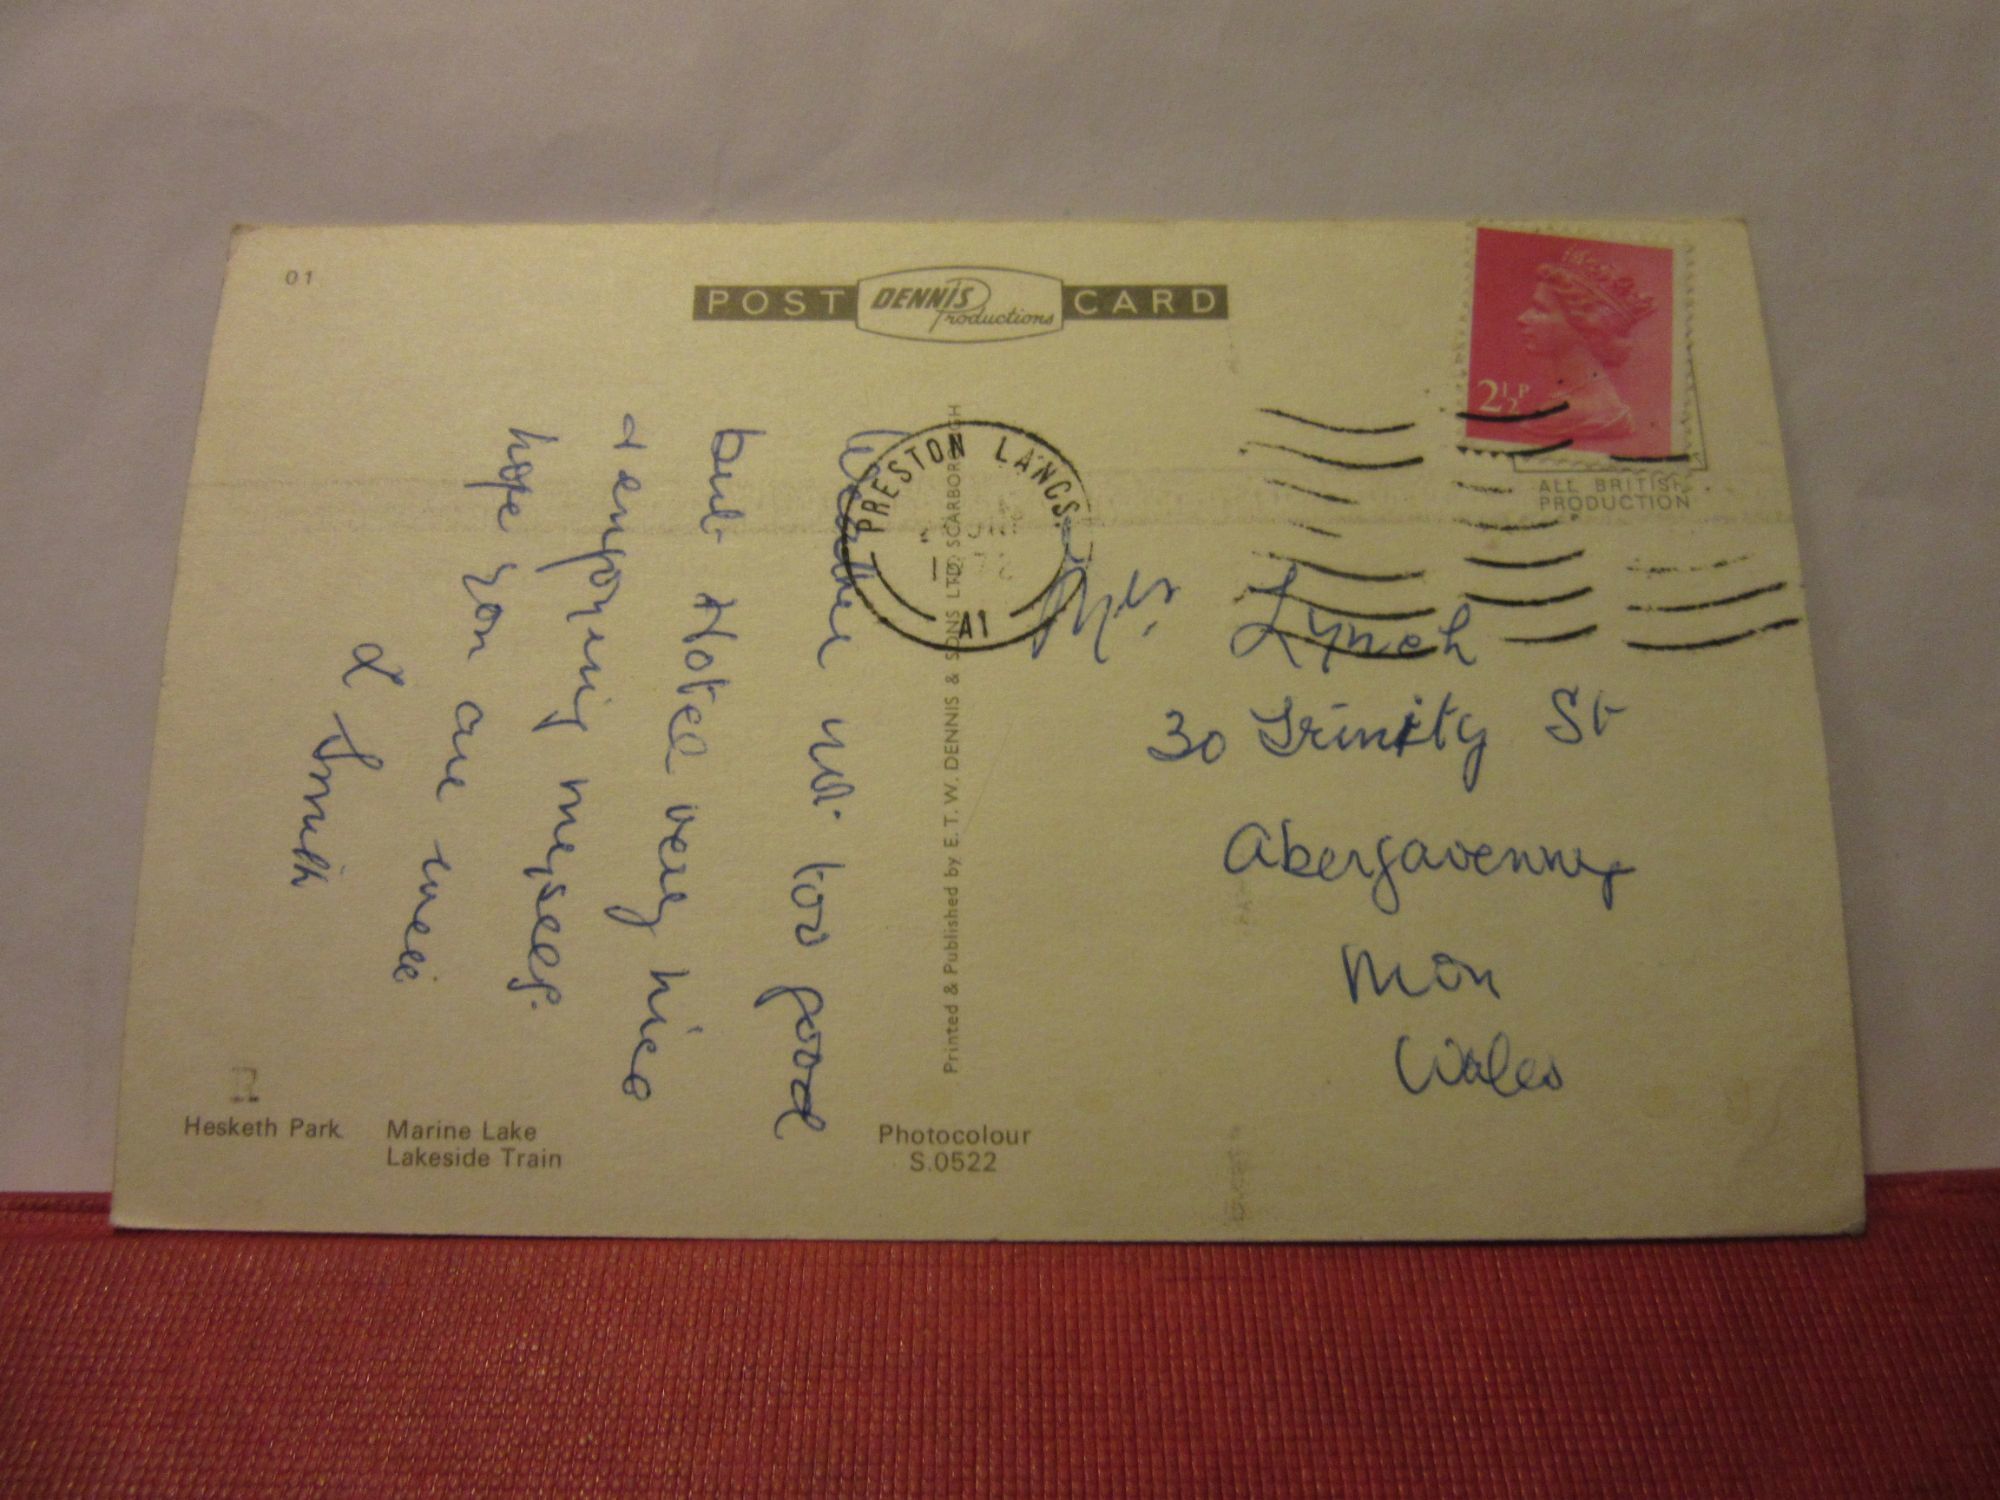 01
POST DENNIS Productions CARD
2½P
ALL BRITISH
PRODUCTION
PRESTON LANCS.
A1
Weather not too good
but Hotel very nice
& enjoying myself.
hope you are well
L Smith
Printed & Published by E. T. W. DENNIS & SONS LTD. SCARBOROUGH
Mrs Lynch
30 Trinity St
Abergavenny
Mon
Wales
Hesketh Park
Marine Lake
Lakeside Train
Photocolour
S.0522